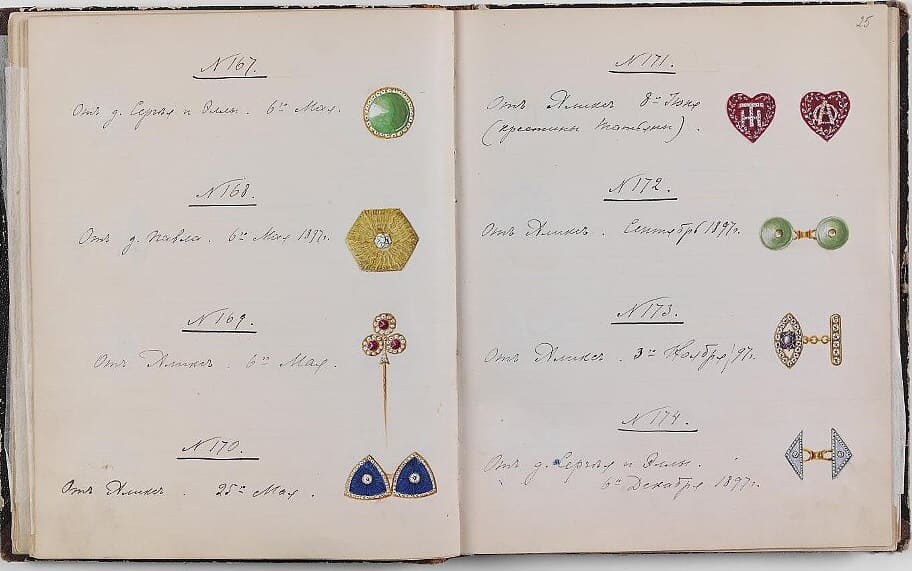 N 167.
Отъ д. Сергѣя и Эллы. 6го Мая.
N 168.
Отъ д. Павла. 6го Мая 1897г.
N 169.
Отъ Аликсъ. 6го Мая.
N 170.
Отъ Аликсъ. 25го Мая.
25
N 171.
Отъ Аликсъ 8го Іюня
(крестины Татьяны).
ТН
А
N 172.
Отъ Аликсъ. Сентябрь 1897г.
N 173.
Отъ Аликсъ. 3го Ноября/97г.
N 174.
Отъ д. Сергѣя и Эллы.
6го Декабря 1897г.